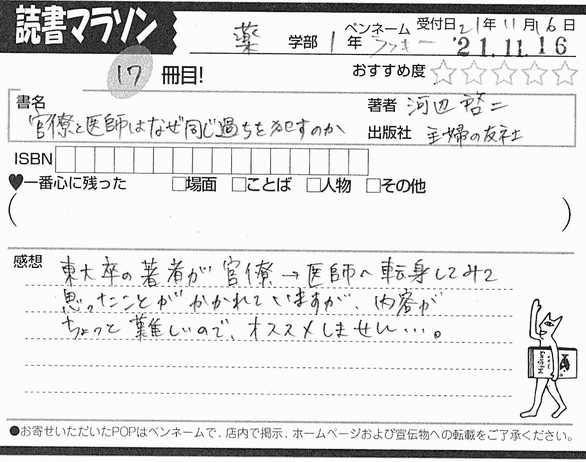 読書マラソン
薬 学部 1 年 ペンネーム ファンキー 受付日 21年 11月 16日
'21.11.16
17 冊目! おすすめ度 ☆☆☆☆☆
書名 著者 河辺啓二
官僚と医師はなぜ同じ過ちを犯すのか 出版社 主婦の友社
ISBN
♥一番心に残った □場面 □ことば □人物 □その他
( )
感想 東大卒の著者が官僚→医師へ転身してみて
思ったことがかかれていますが、内容が
ちょっと難しいので、オススメしません…。
●お寄せいただいたPOPはペンネームで、店内で掲示、ホームページおよび宣伝物への転載をご了承ください。